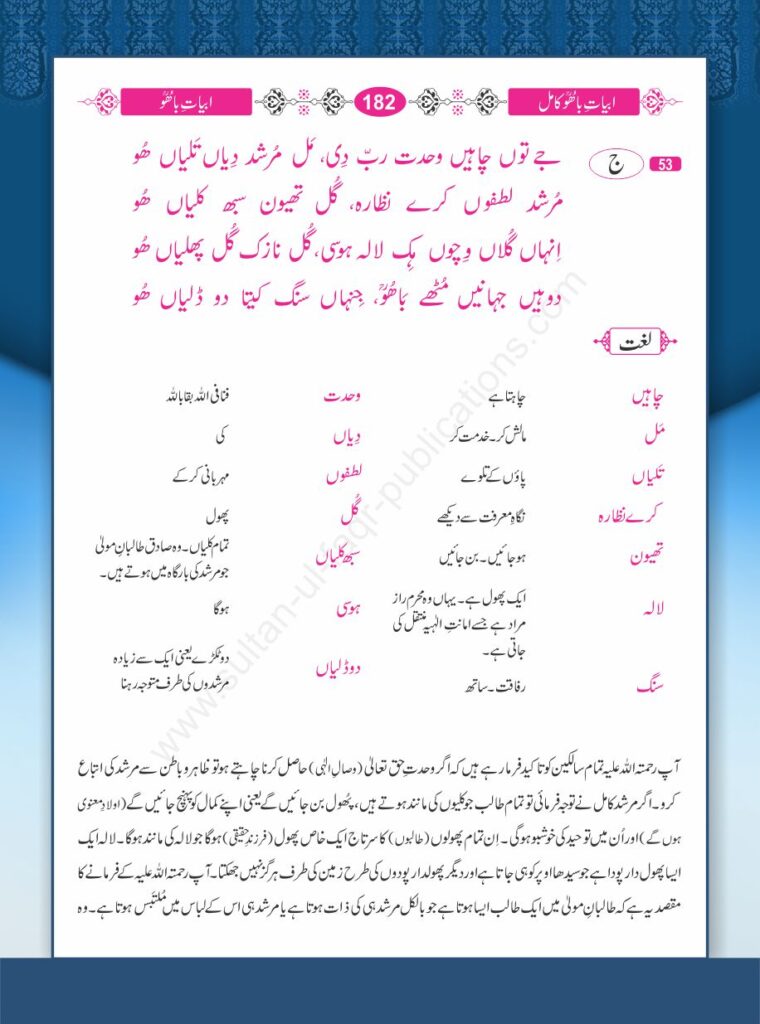 ابیاتِ باھُوؒ کامل 182 ابیاتِ باھُوؒ
53 ج
جے توں چاہیں وحدت ربّ دِی، مَل مُرشد دِیاں تَلیاں ھُو
مُرشد لطفوں کرے نظارہ، گُل تھیون سبھ کلیاں ھُو
اِنہاں گُلاں وِچوں ہِک لالہ ہوسی، گُل نازک گُل پھلیاں ھُو
دوہیں جہانیں مُٹھے بَاھُوؒ، جِنہاں سنگ کیتا دو ڈلیاں ھُو
لغت
چاہیں چاہتا ہے وحدت فنا فی اللہ بقا باللہ
مَل مالش کر۔ خدمت کر دِیاں کی
تَلیاں پاؤں کے تلوے لطفوں مہربانی کر کے
کرے نظارہ نگاہِ معرفت سے دیکھے گُل پھول
تھیون ہوجائیں۔ بن جائیں سبھ کلیاں تمام کلیاں۔ وہ صادق طالبانِ مولیٰ
جو مرشد کی بارگاہ میں ہوتے ہیں۔
لالہ ایک پھول ہے۔ یہاں وہ محرمِ راز
مراد ہے جسے امانتِ الٰہیہ منتقل کی
جاتی ہے۔
ہوسی ہوگا
سنگ رفاقت۔ ساتھ
دو ڈلیاں دو ٹکڑے یعنی ایک سے زیادہ
مرشدوں کی طرف متوجہ رہنا
آپ رحمتہ اللہ علیہ تمام سالکین کو تاکید فرما رہے ہیں کہ اگر وحدتِ حق تعالیٰ (وصالِ الٰہی) حاصل کرنا چاہتے ہو تو ظاہر و باطن سے مرشد کی اتباع
کرو۔ اگر مرشد کامل نے توجہ فرمائی تو تمام طالب جو کلیوں کی مانند ہوتے ہیں، پھُول بن جائیں گے یعنی اپنے کمال کو پہنچ جائیں گے (اولادِ معنوی
ہوں گے) اور اُن میں توحید کی خوشبو ہوگی۔ اِن تمام پھولوں (طالبوں) کا سرتاج ایک خاص پھول (فرزندِ حقیقی) ہوگا جو لالہ کی مانند ہوگا۔ لالہ ایک
ایسا پھول دار پودا ہے جو سیدھا اوپر کو ہی جاتا ہے اور دیگر پھولدار پودوں کی طرح زمین کی طرف ہرگز نہیں جھکتا۔ آپ رحمتہ اللہ علیہ کے فرمانے کا
مقصد یہ ہے کہ طالبانِ مولیٰ میں ایک طالب ایسا ہوتا ہے جو بالکل مرشد ہی کی ذات ہوتا ہے یا مرشد ہی اس کے لباس میں مُلتَبس ہوتا ہے۔ وہ
www.sultan-ul-faqr-publications.com